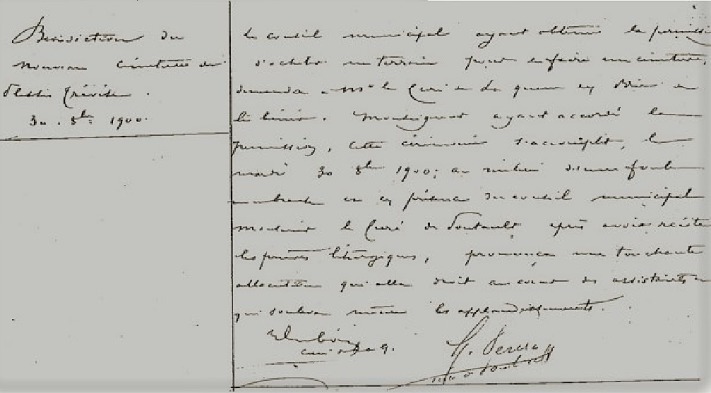 Bénédiction du
nouveau cimetière du
Plessis Trévise.
30. 8bre 1900.
Le conseil municipal ayant obtenu la permission
d'acheter un terrain pour en faire un cimetière,
demanda à Mr le Curé de La queue en Brie de
le bénir. Monseigneur ayant accordé la
permission, cette cérémonie s'accomplit, le
mardi 30 8bre 1900; au milieu d'une foule
nombreuse et en présence du conseil municipal
Monsieur le Curé de Pontault après avoir récité
les prières liturgiques, prononça une touchante
allocution qui alla droit au cœur des assistants et
qui souleva même les applaudissements.